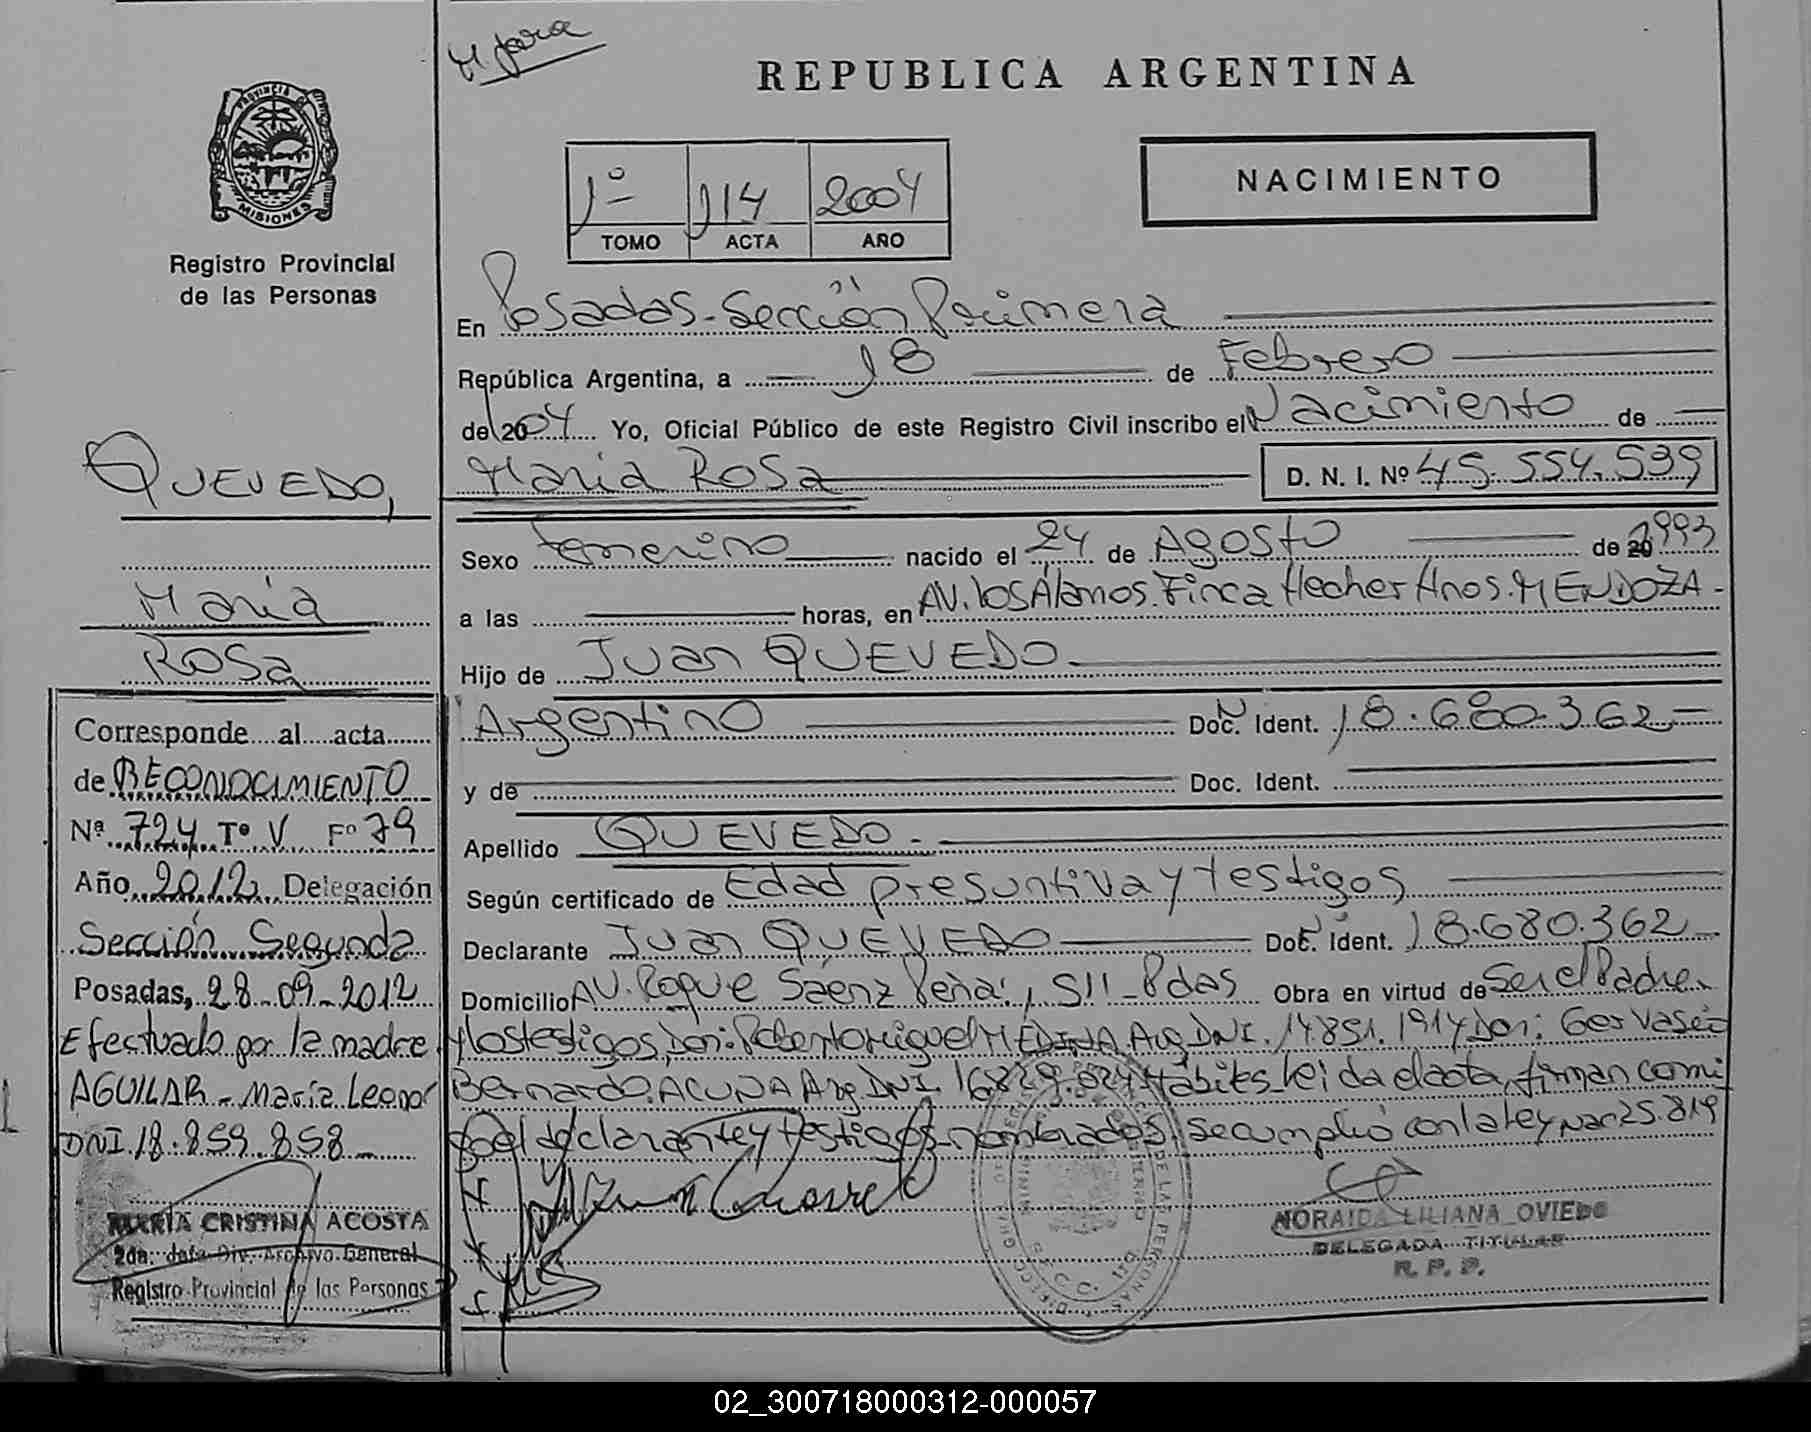 REPUBLICA ARGENTINA
PROVINCIA DE
MISIONES
Registro Provincial
de las Personas
1º 114 2004
TOMO ACTA AÑO
NACIMIENTO
En Posadas - Sección Primera
República Argentina, a 18 de Febrero
de 2004 Yo, Oficial Público de este Registro Civil inscribo el Nacimiento de
Maria Rosa D. N. I. Nº 45.554.539
Sexo femenino nacido el 24 de Agosto de 1993
a las horas, en AV. los Álamos. Finca Hecher Hnos. MENDOZA -
Hijo de Juan QUEVEDO.
Argentino Doc. Ident. 18.680.362
y de Doc. Ident.
Apellido QUEVEDO.
Según certificado de Edad presuntiva y testigos
Declarante Juan QUEVEDO Doc. Ident. 18.680.362
Domicilio AV. Roque Sáenz Peña, S/1 - Pdas Obra en virtud de Ser el Padre.
y los testigos, Don: Roberto Miguel MEDINA Arg. DNI. 14.851.191 y Don: Gervasio
Bernardo ACUÑA Arg. DNI. 16.829.024 Hábiles Leída el acta, firman conmi
go el declarante y testigos nombrados, se cumplió con la Ley Nac 25.819
NORAIDA LILIANA OVIEDO
DELEGADA TITULAR
R. P. P.
QUEVEDO,
Maria
Rosa
Corresponde al acta
de RECONOCIMIENTO
Nº 724 Tº V Fº 79
Año 2012 Delegación
Sección Segunda
Posadas, 28-09-2012
Efectuado por la madre
AGUILAR - María Leonor
DNI. 18.859.858
MARIA CRISTINA ACOSTA
2da. Jefa Div. Archivo General
Registro Provincial de las Personas
02_300718000312-000057